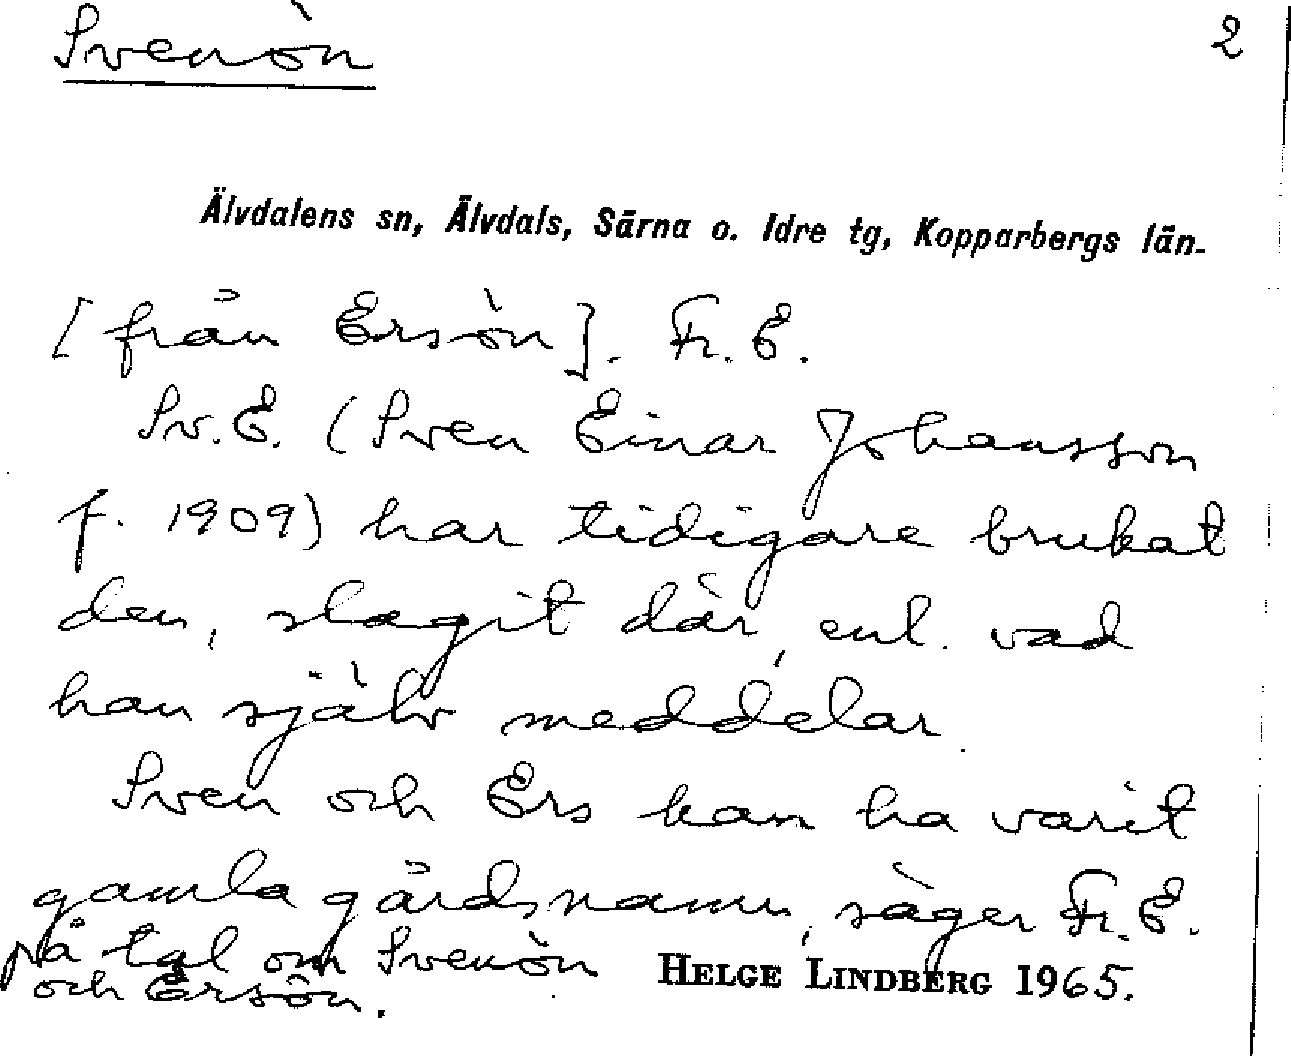 Svenön 2
Älvdalens sn, Älvdals, Särna o. Idre tg, Kopparbergs län.
[från Ersön]. Fr. E.
Sv. E. (Sven Einar Johansson
f. 1909) har tidigare brukat
den, slagit där, enl. vad
han själv meddelar.
Sven och Ers kan ha varit
gamla gårdsnamn, säger Fr. E.
på tal om Svenön
och Ersön. HELGE LINDBERG 1965.